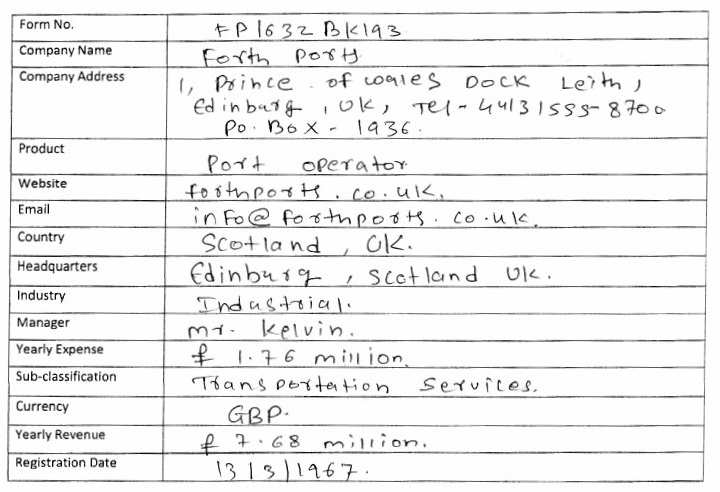 Form No. FP1632BK193
Company Name Forth Ports
Company Address 1, Prince of wales Dock Leith,
Edinburg, UK, Tel-44131555-8700
Po. Box - 1936.
Product Port operator
Website forthports.co.uk.
Email info@forthports.co.uk.
Country Scotland, UK.
Headquarters Edinburg, Scotland UK.
Industry Industrial.
Manager mr. kelvin.
Yearly Expense £ 1.76 million.
Sub-classification Transportation Services.
Currency GBP.
Yearly Revenue £ 7.68 million.
Registration Date 13/3/1967.